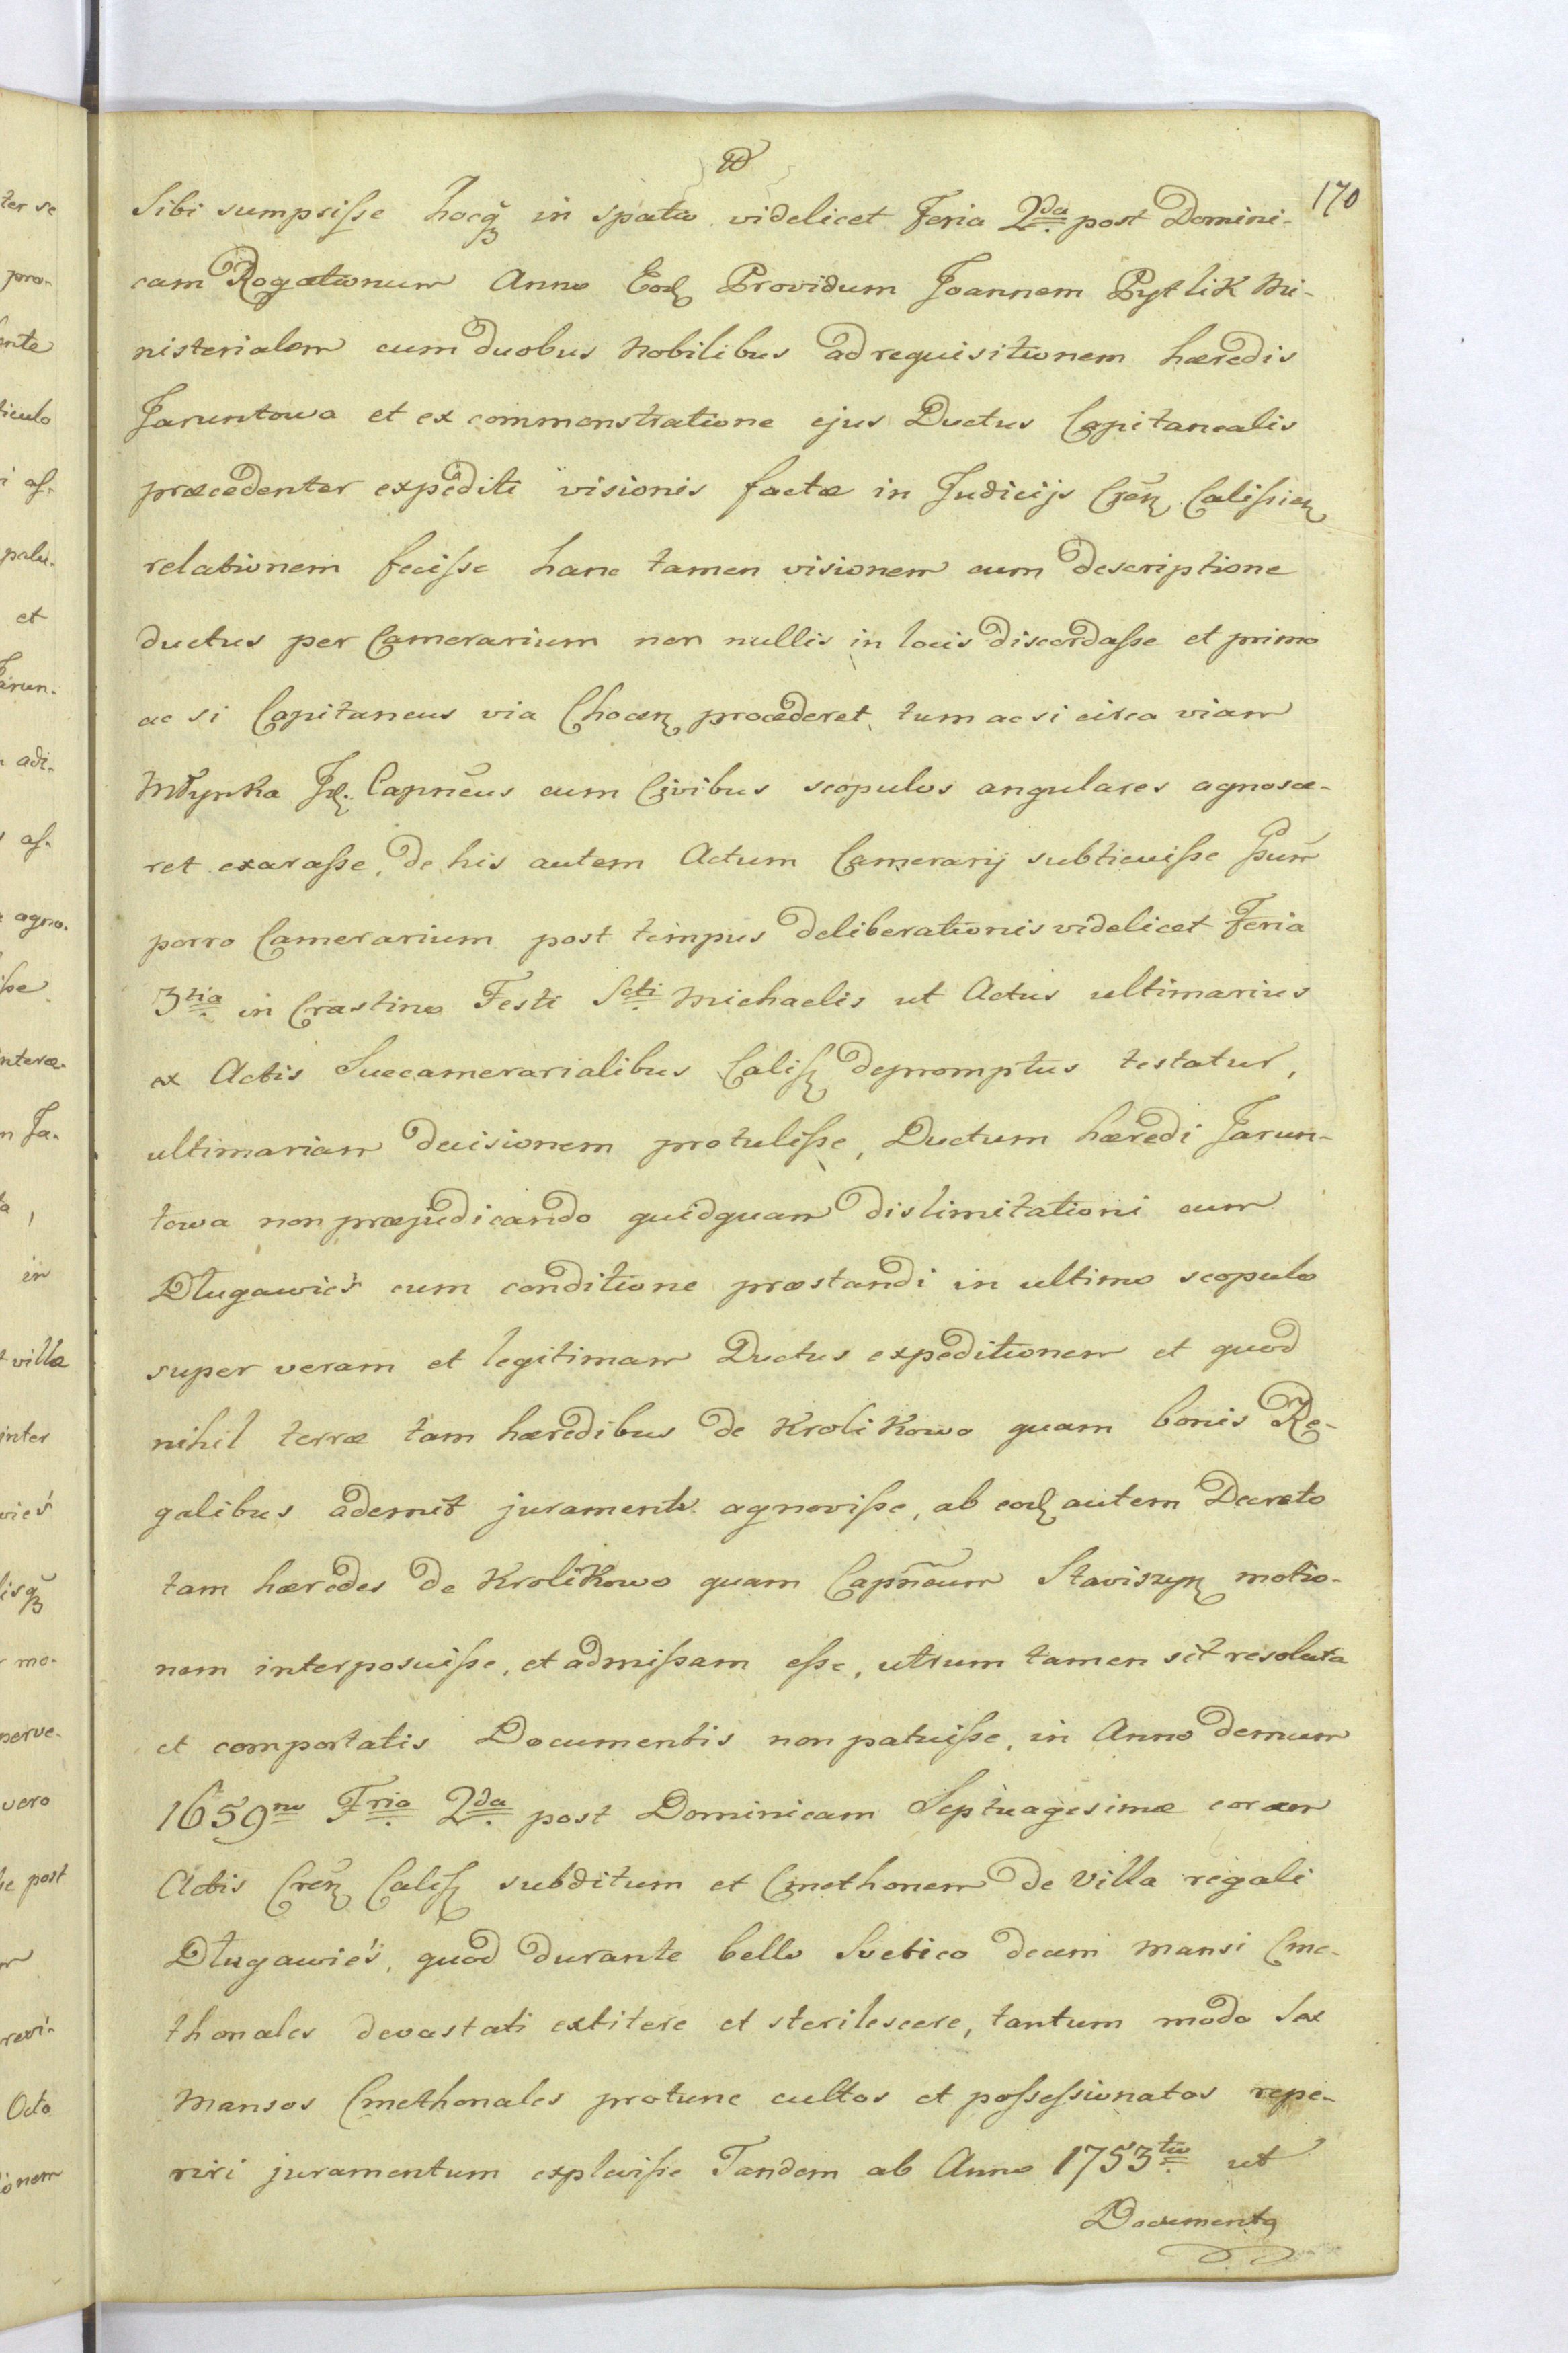 170
Sibi sumpsisse hocq̃ in spatio videlicet Feria 2da post Domini-
cam Rogationum Anno Eod Providum Joannem Pytlik Mi-
nisterialem cum duobus Nobilibus ad requisitionem hæredis
Jaruntowa et ex commonstratione ejus Ductus Capitanealis
præcedenter expediti visionis factæ in Judicijs Cren Calissien
relationem fecisse hanc tamen visionem cum descriptione
ductus per Camerarium non nullis in locis discordasse et primo
ac si Capitaneus via Chocen procederet, tum ac si circa viam
Młynka Id. Capnẽus cum Civibus scopulos angulares agnosce-
ret exarasse, de his autem Actum Camerarij subticuisse Ipsum
porro Camerarium post tempus deliberationis videlicet Feria
3tia in Crastino Festi Scti Michaelis ut Actus ultimarius
ex Actis Succamerarialibus Calis depromptus testatur,
ultimariam decisionem protulisse, Ductum hæredi Jarun-
towa non præjudicando quidquam dislimitationi cum
Długawieś cum conditione præstandi in ultimo scopulo
super veram et legitimam Ductus expeditionem et quod
nihil terræ tam hæredibus de Krolikowo quam bonis Re-
galibus ademit juramenti agnovisse, ab eod autem Decreto
tam hæredes de Krolikowo quam Capnẽum Staviszyn motio-
nem interposuisse, et admissam esse, utrum tamen sit resoluta
et comportatis Documentis non patuisse, in Anno demum
1659no Fria 2da post Dominicam Septuagesimæ coram
Actis Cren Calis subditum et Cmethonem de Villa regali
Długawieś, quod durante bello Svetico decem Mansi Cme-
thonales devastati extitere et sterilescere, tantum modo Sex
Mansos Cmethonales protunc cultos et possessionatos repe-
riri juramentum explevisse Tandem ab Anno 1753tio ut
Documenta